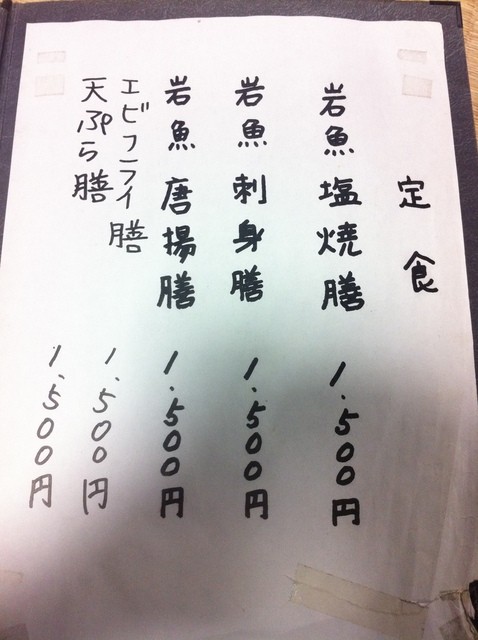 定食
岩魚塩焼膳 1.500円
岩魚刺身膳 1.500円
岩魚唐揚膳 1.500円
エビフライ膳 1.500円
天ぷら膳 1.500円